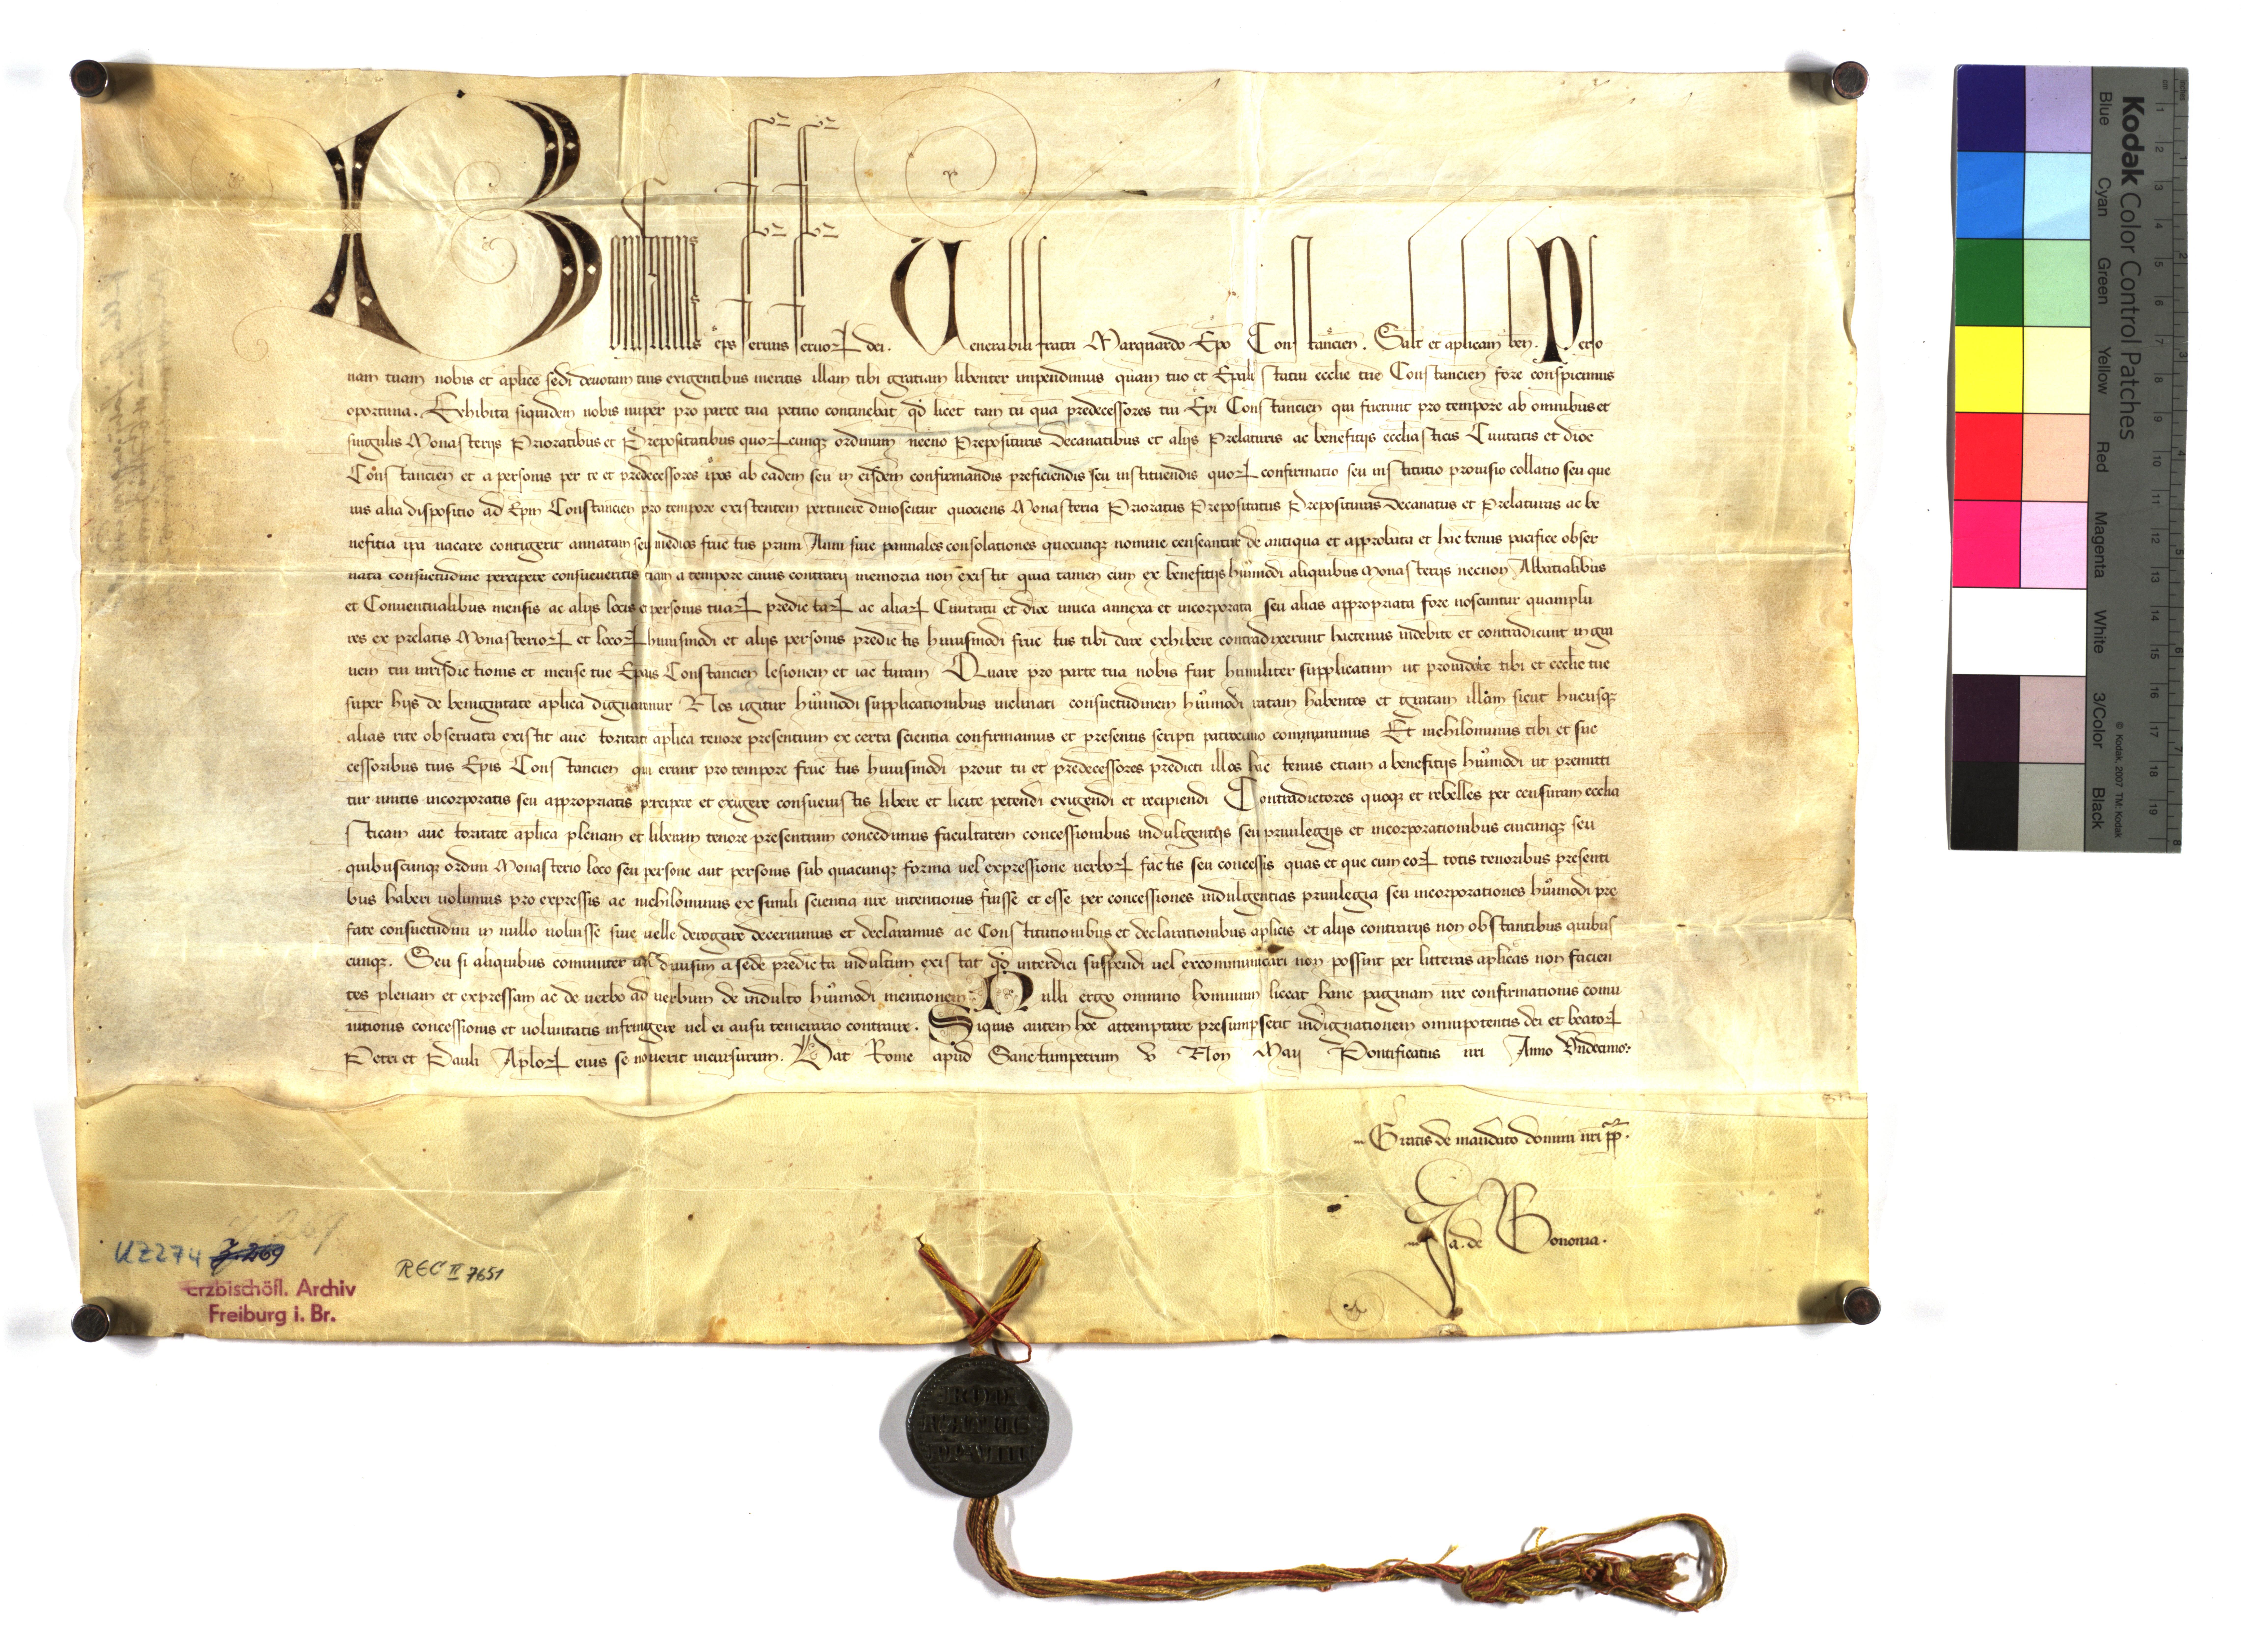 Bonifatius eps seruus seruoꝝ dei. Venerabili fratri Marquardo Epo Constancien. Salt et aplicam ben. Perso
nam tuam nobis et aplice sedi deuotam tuis exigentibus meritis illam tibi gratiam libenter impendimus quam tuo et Epali statui ecclie tue Constancien fore conspicimus
oportuna. Exhibita siquidem nobis nuper pro parte tua petitio continebat qd licet tam tu qua predecessores tui Epi Constancien qui fuerunt pro tempore ab omnibus et
singulis Monasterijs Prioratibus et Prepositatibus quoꝝcunqꝫ ordinum necno Prepositturis decanatibus et alijs Prelaturis ac benefitijs eccliasticis Ciuitatis et dioc
Constancien et a personis per te et predecessores ipos ab eadem seu in eisdem confirmandis preficiendis seu instituendis quoꝝ confirmatio seu institutio prouisio collatio seu que
uis alia dispositio ad Epm Constancien pro tempore existentem pertinere dinoscitur quociens Monasteria Prioratus Prepositatus Preposituras decanatus et Prelaturas ac be
nefitia ipa uacare contigerit annatam seu medios fructus primi Anni siue pannales consolationes quocunqꝫ nomine censeantur de antiqua et approbata et hactenus pacifice obser
uata consuetudine percipere consueueritis etiam a tempore cuius contrarij memoria non existit quia tamen cum ex benefitijs hmodi aliquibus Monasterijs necnon Abbatialibus
et Conuentualibus mensis ac alijs locis et personis tuaꝝ predictaꝝ ac aliaꝝ Ciuitatu et dioc unica annexa et incorporata seu alias appropriata fore noscuntur quamplu
res ex prelatis Monasterioꝝ et locoꝝ huiusmodi et alijs personis predictis huiusmodi fructus tibi dare exhibere contradixerunt hactenus indebite et contradicunt in gra
uem tui iurisdictionis et mense tue Epalis Constancien lesionem et iacturam Quare pro parte tua nobis fuit humiliter supplicatum ut prouidere tibi et ecclie tue
super hijs de benignitate aplica dignaremur Nos igitur hmodi supplicationibus inclinati consuetudinem hmodi ratam habentes et gratam illam sicut hucusqꝫ
alias rite obseruata existit auctoritate aplica tenore presentium ex certa scientia confirmamus et presentis scripti patrocinio communimus Et nichilominus tibi et suc
cessoribus tuis Epis Constancien qui erunt pro tempore fructus huiusmodi prout tu et predecessores predicti illos hactenus etiam a benefitijs hmodi ut premitti
tur unitis incorporatis seu appropriatis percipere et exigere consueuistis libere et licite petendi exigendi et recipiendi Contradictores quoqꝫ et rebelles per censuram ecclia
sticam auctoritate aplica plenam et liberam tenore presentium concedimus facultatem concessionibus indulgentijs seu priuilegijs et incorporationibus cuicunqꝫ seu
quibuscunqꝫ ordini Monasterio loco seu persone aut personis sub quacunqꝫ forma uel expressione uerboꝝ factis seu concessis quas et que cum eoꝝ totis tenoribus presenti
bus haberi uolumus pro expressis ac nichilominus ex simili scientia nre intentionis fuisse et esse per concessiones indulgentias priuilegia seu incorporationes hmodi pre
fate consuetudini in nullo uoluisse siue uelle derogare decernimus et declaramus ac Constitutionibus et declarationibus aplicis et alijs contrarijs non obstantibus quibus
cunqꝫ. Seu si aliquibus comuniter uel diuisim a sede predicta indultum existat qd interdici suspendi uel excommunicari non possint per litteras aplicas non facien
tes plenam et expressam ac de uerbo ad uerbum de indulto hmodi mentionem. Nulli ergo omnino hominum liceat hanc paginam nre confirmationis comu
nitionis concessionis et voluntatis infringere uel ei ausu temerario contraire. Siquis autem hoc attemptare presumpserit indignationem omnipotentis dei et beatoꝝ
Petri et Pauli Aploꝝ eius se nouerit incursurum. Dat Rome apud Sanctumpetrum v Non Maij Pontificatus nri Anno Vndecimo:
Gratis de mandato domini nri pp.
Ja. de Bononia.
UZ 274 J. 269
REC III 7651
Erzbischöfl. Archiv
Freiburg i. Br.
BONI
FATIUS
PP VIIII
Kodak Color Control Patches
Blue Cyan Green Yellow Red Magenta White 3/Color Black
© Kodak, 2007 TM: Kodak
cm 1 2 3 4 5 6 7 8 9 10 11 12 13 14 15 16 17 18 19
inches 1 2 3 4 5 6 7 8